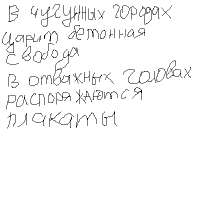 В чугунных городах
царит бетонная
свобода
В отважных головах
распоряжаются
плакаты